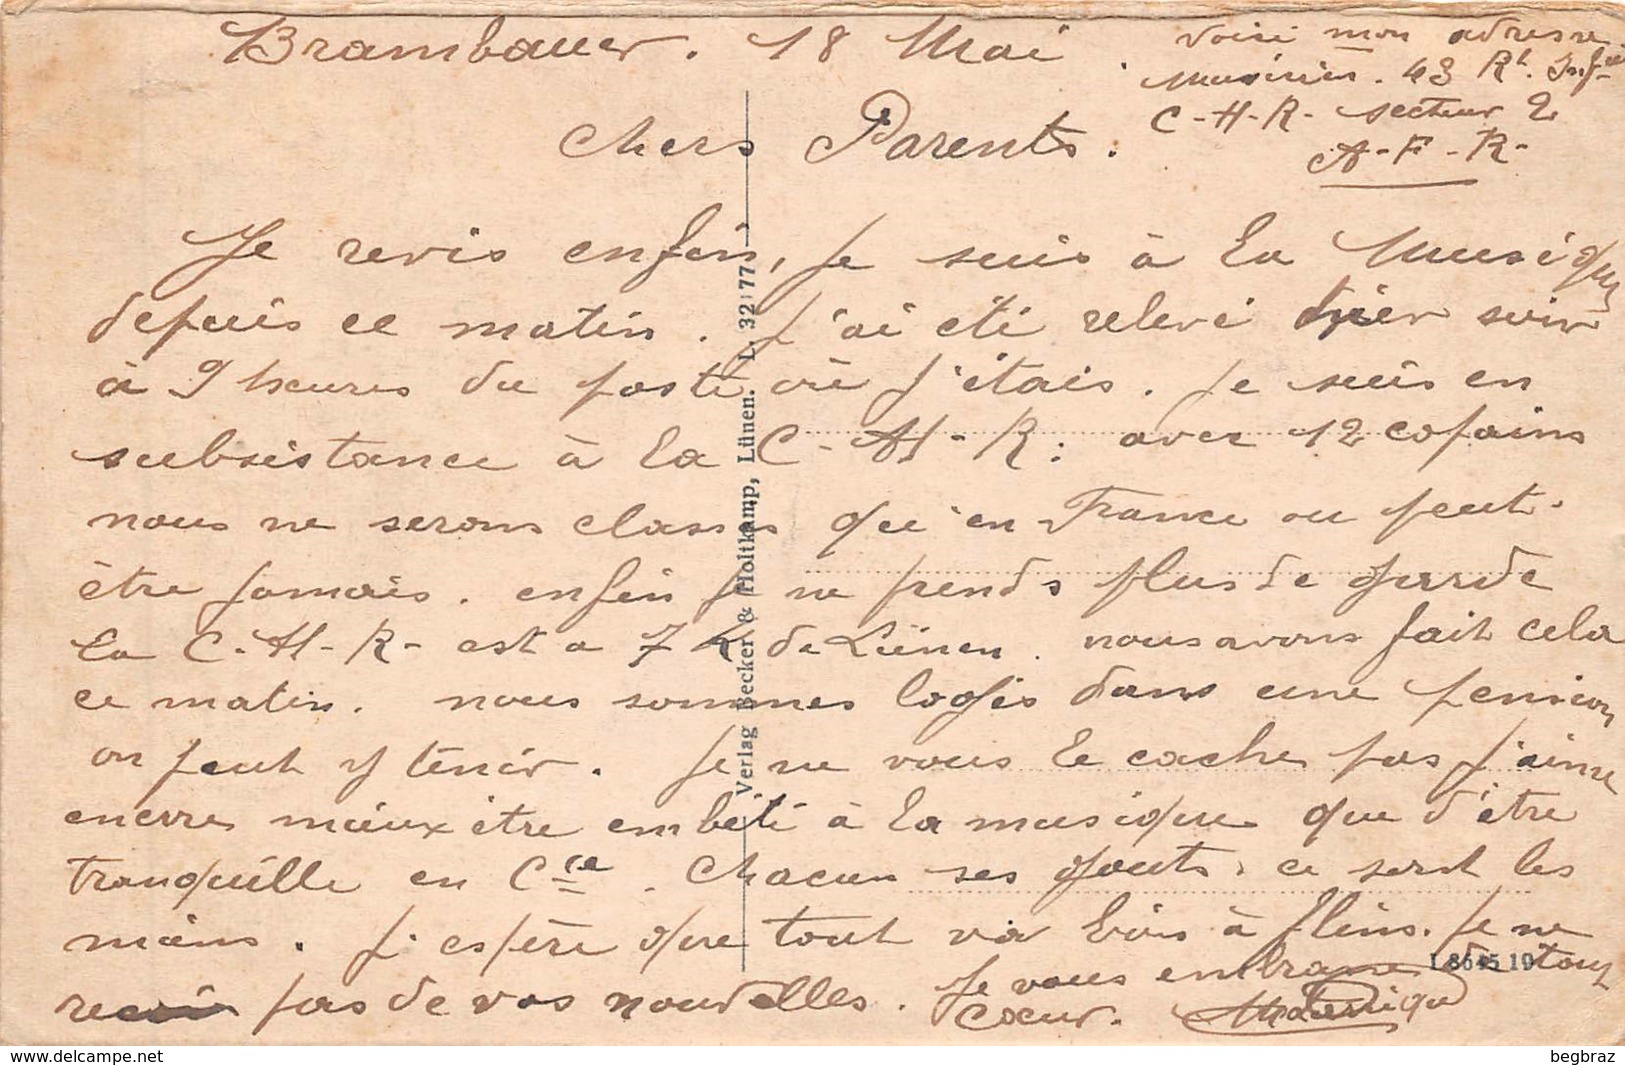 Brambauer. 18 Mai
voici mon adresse
Musicien. 43 Rt. Infie
C-H-R- secteur 2
A-F-R-
Chers Parents.
Je revis enfin, je suis à la Musique
depuis ce matin. J'ai été relevé hier soir
à 9 heures du poste où j'étais. Je suis en
subsistance à la C-H-R: avec 12 copains
nous ne serons classés qu'en France ou peut-
être jamais. enfin je ne prends plus de garde
la C-H-R- est a 7 K de Lünen. nous avons fait cela
ce matin. nous sommes logés dans une pension
on peut y tenir. Je ne vous le cache pas j'aime
encore mieux être embêté à la musique que d'être
tranquille en Cie. Chacun ses gouts. ce sont les
miens. J'espère que tout va bien à Flins. Je ne
reçois pas de vos nouvelles. Je vous embrasse de tout
cœur.
Verlag Becker & Holtkamp, Lünen. L. 32177
L 8645 19
delcampe.net
begbraz